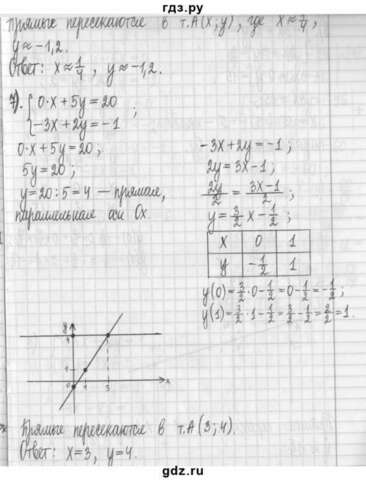 гдз.ру
прямые пересекаются в т.А(x;y), где x≈1/4,
y≈-1,2.
Ответ: x≈1/4, y≈-1,2.
7). { 0·x+5y=20
-3x+2y=-1 ;
0·x+5y=20;
5y=20;
y=20:5=4 — прямая,
параллельная оси Ox
-3x+2y=-1;
2y=3x-1;
2y/2 = 3x-1/2;
y=3/2 x-1/2;
x 0 1
y -1/2 1
y(0)=3/2·0-1/2=0-1/2=-1/2;
y(1)=3/2·1-1/2=3/2-1/2=2/2=1.
y
4
1
0 1 3 x
Прямые пересекаются в т.А(3;4).
Ответ: x=3, y=4.
gdz.ru